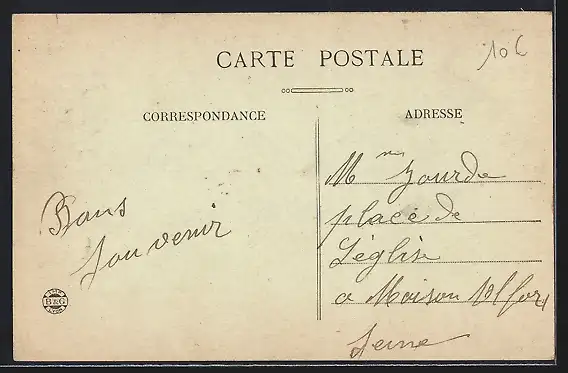 10 C
CARTE POSTALE
CORRESPONDANCE
ADRESSE
Bons
souvenir
B&G
LYON
Mme Jourde
place de
L'église
a Maison Alfort
Seine